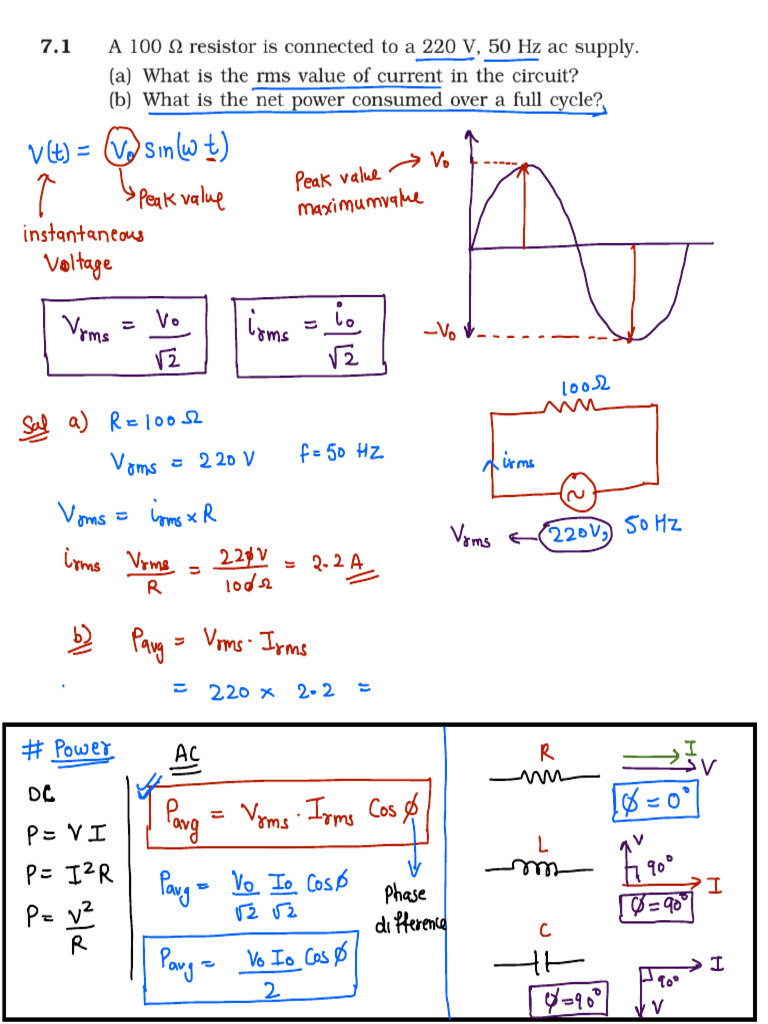 7.1 A 100 Ω resistor is connected to a 220 V, 50 Hz ac supply.
(a) What is the rms value of current in the circuit?
(b) What is the net power consumed over a full cycle?
V(t) = V₀ sin(ω t)
Peak value
instantaneous
Voltage
Peak value → V₀
maximumvalue
-V₀
Vrms = V₀/√2
irms = i₀/√2
Sol a) R = 100 Ω
Vrms = 220 V f = 50 HZ
Vrms = irms × R
irms Vrms/R = 220V/100Ω = 2.2 A
100Ω
irms
Vrms ← 220V, 50 HZ
b) Pavg = Vrms · Irms
= 220 × 2.2 =
# Power
DC
P = VI
P = I²R
P = V²/R
AC
Pavg = Vrms · Irms Cos ϕ
Phase
difference
Pavg = V₀/√2 I₀/√2 Cosϕ
Pavg = V₀ I₀ Cos ϕ/2
R
I
V
ϕ = 0°
L
V
90°
I
ϕ = 90°
C
I
90°
V
ϕ = 90°